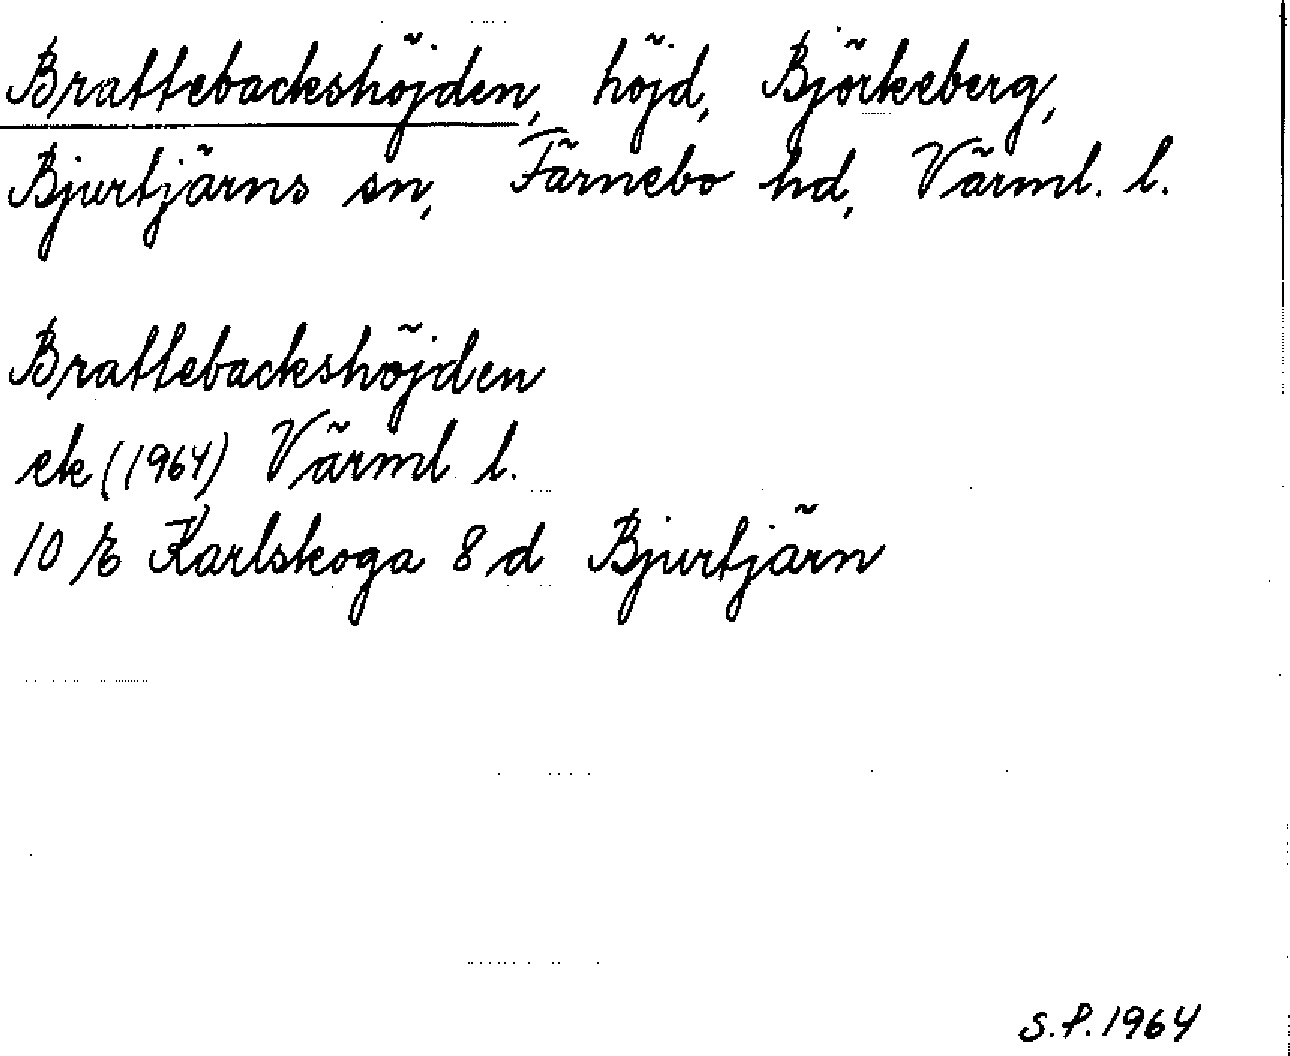 Brattebackshöjden, höjd, Björkeberg,
Bjurtjärns sn, Färnebo hd, Värml. l.
Brattebackshöjden
ek (1964) Värml l.
10 E Karlskoga 8 d Bjurtjärn
S.P. 1964